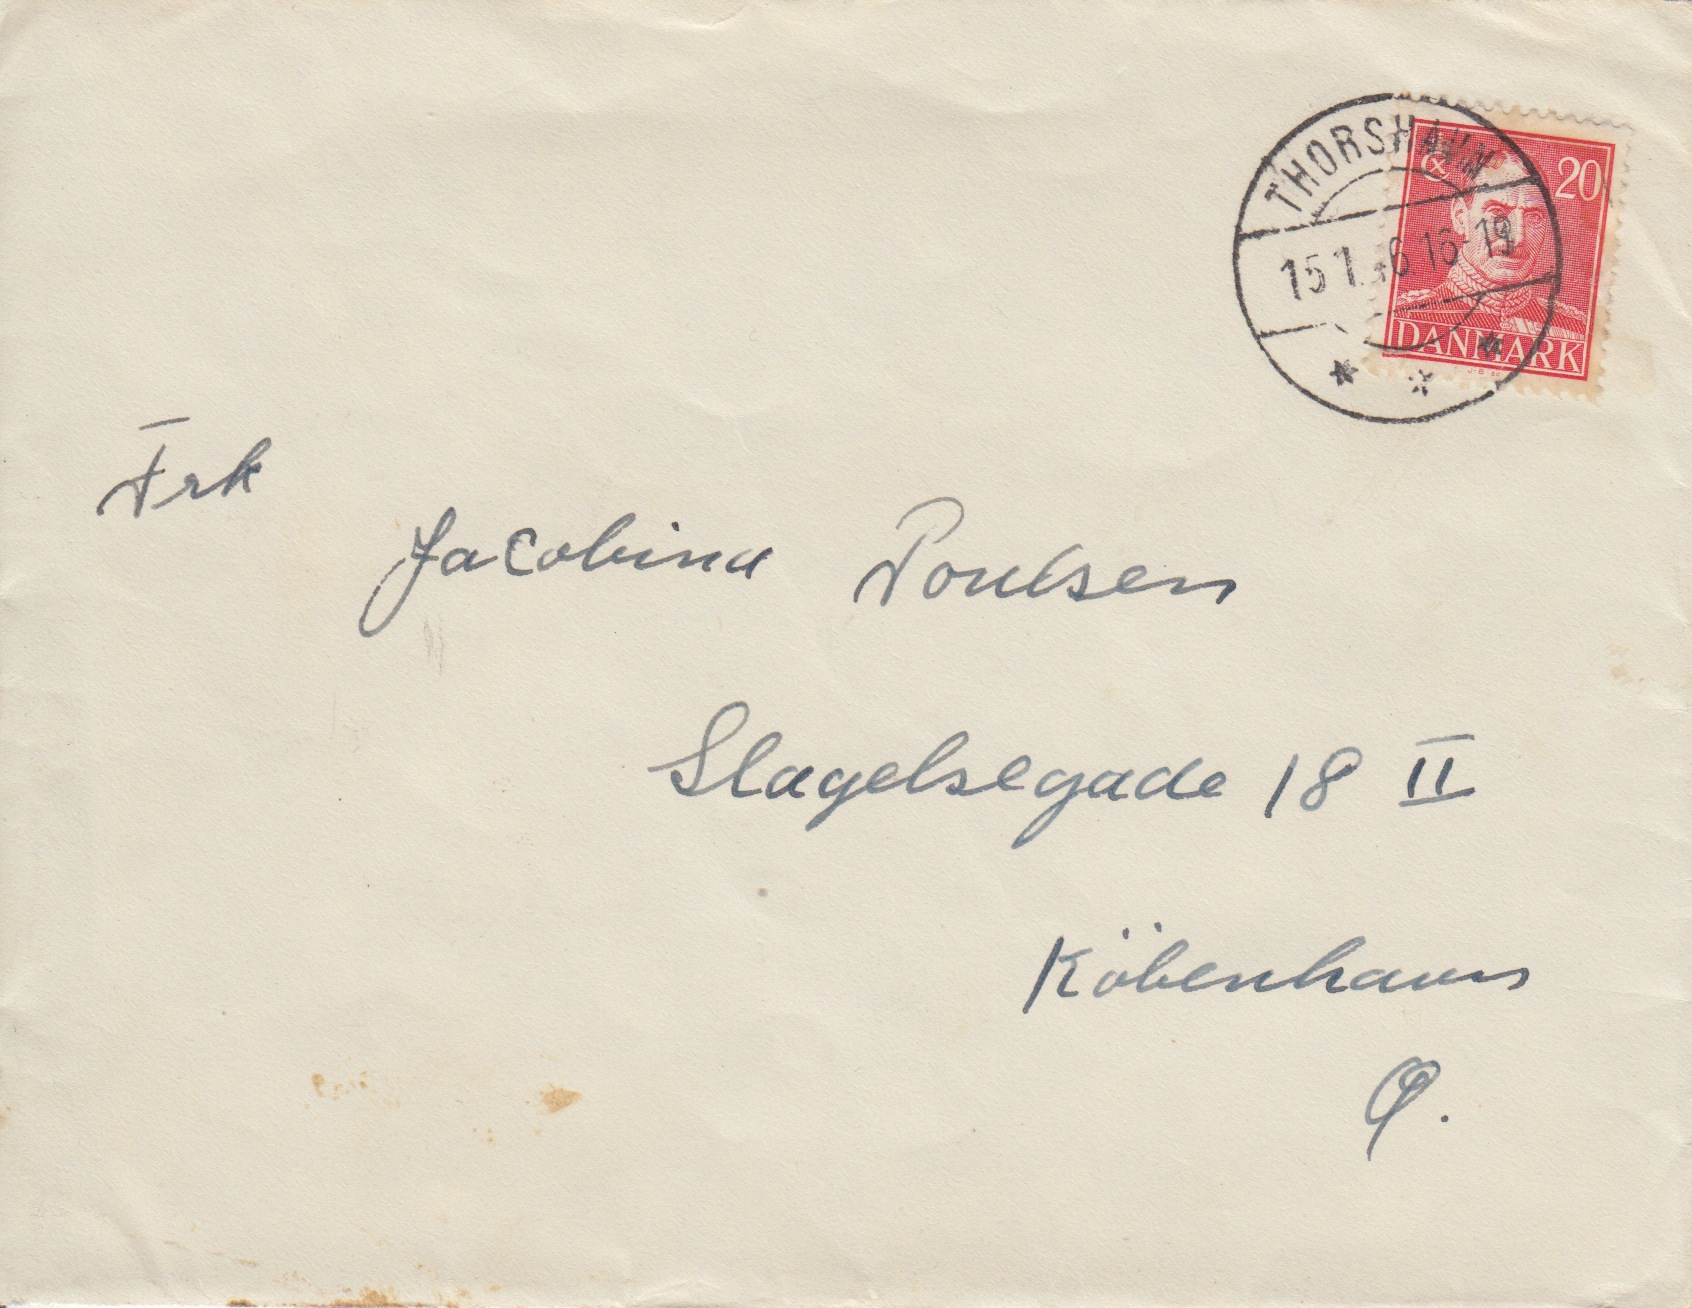 THORSHAVN
15 1.46 16-19
20
DANMARK
Frk
Jacobina Poulsen
Slagelsegade 18 II
Köbenhavn
Ø.